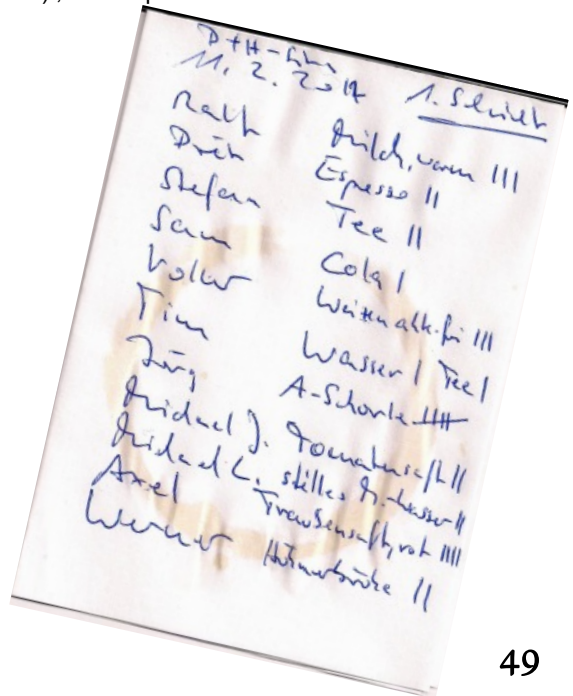 11. 2. 2017 1. Schicht
Ralf Milch, warm III
Dirk Espresso II
Stefan Tee II
Sam Cola I
Volker Weizen alk.frei III
Tim Wasser I Tee I
Jörg A-Schorle IIII
Michael J. Tomatensaft II
Michael L. stilles M.-wasser II
Axel Traubensaft, rot IIII
Werner Hühnerbrühe II
49